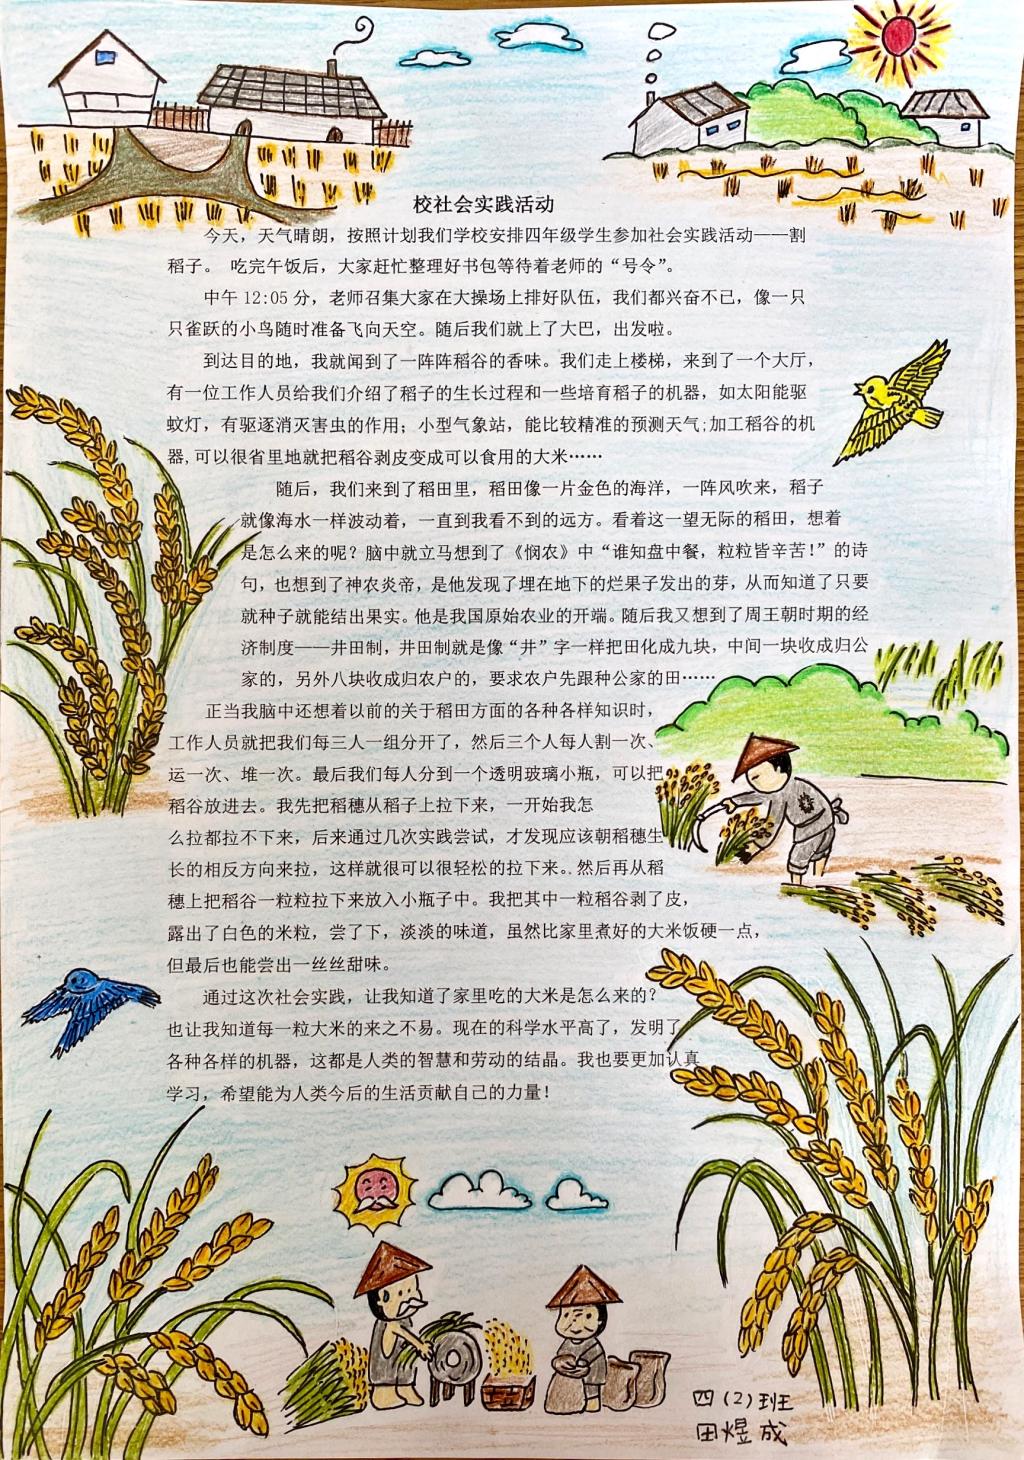 校社会实践活动
今天，天气晴朗，按照计划我们学校安排四年级学生参加社会实践活动——割
稻子。 吃完午饭后，大家赶忙整理好书包等待着老师的“号令”。
中午 12:05 分，老师召集大家在大操场上排好队伍，我们都兴奋不已，像一只
只雀跃的小鸟随时准备飞向天空。随后我们就上了大巴，出发啦。
到达目的地，我就闻到了一阵阵稻谷的香味。我们走上楼梯，来到了一个大厅，
有一位工作人员给我们介绍了稻子的生长过程和一些培育稻子的机器，如太阳能驱
蚊灯，有驱逐消灭害虫的作用；小型气象站，能比较精准的预测天气;加工稻谷的机
器,可以很省里地就把稻谷剥皮变成可以食用的大米……
随后，我们来到了稻田里，稻田像一片金色的海洋，一阵风吹来，稻子
就像海水一样波动着，一直到我看不到的远方。看着这一望无际的稻田，想着
是怎么来的呢？脑中就立马想到了《悯农》中“谁知盘中餐，粒粒皆辛苦！”的诗
句，也想到了神农炎帝，是他发现了埋在地下的烂果子发出的芽，从而知道了只要
就种子就能结出果实。他是我国原始农业的开端。随后我又想到了周王朝时期的经
济制度——井田制，井田制就是像“井”字一样把田化成九块，中间一块收成归公
家的，另外八块收成归农户的，要求农户先跟种公家的田……
正当我脑中还想着以前的关于稻田方面的各种各样知识时，
工作人员就把我们每三人一组分开了，然后三个人每人割一次、
运一次、堆一次。最后我们每人分到一个透明玻璃小瓶，可以把
稻谷放进去。我先把稻穗从稻子上拉下来，一开始我怎
么拉都拉不下来，后来通过几次实践尝试，才发现应该朝稻穗生
长的相反方向来拉，这样就很可以很轻松的拉下来。.然后再从稻
穗上把稻谷一粒粒拉下来放入小瓶子中。我把其中一粒稻谷剥了皮，
露出了白色的米粒，尝了下，淡淡的味道，虽然比家里煮好的大米饭硬一点，
但最后也能尝出一丝丝甜味。
通过这次社会实践，让我知道了家里吃的大米是怎么来的？
也让我知道每一粒大米的来之不易。现在的科学水平高了，发明了
各种各样的机器，这都是人类的智慧和劳动的结晶。我也要更加认真
学习，希望能为人类今后的生活贡献自己的力量！
四（2）班
田煜成